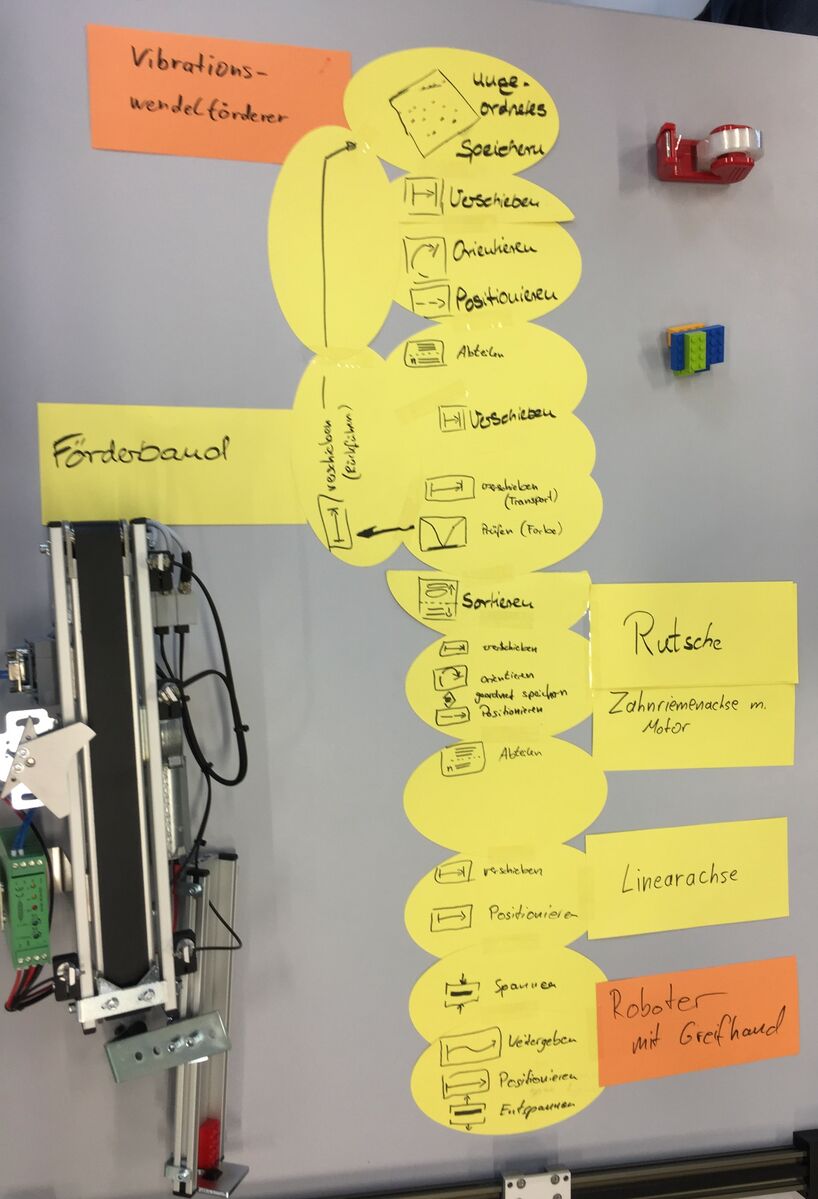 Vibrations-
wendelförderer
Unge-
ordnetes
Speichern
Verschieben
Orientieren
Positionieren
n
Abteilen
Verschieben
Förderband
verschieben
(Rückführen)
verschieben
(Transport)
Prüfen (Farbe)
Sortieren
Rutsche
verschieben
orientieren
geordnet speichern
Positionieren
Zahnriemenachse m.
Motor
n
Abteilen
verschieben
Positionieren
Linearachse
Spannen
Weitergeben
Positionieren
Entspannen
Roboter
mit Greifhand